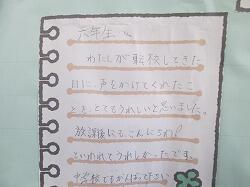 六年生へ
わたしが転校してきた
日に、声をかけてくれたこ
とを、とてもうれしいと思いました。
放課後にも、こんにちわ!
といわれてうれしかったです。
中学校でもがんばってださい